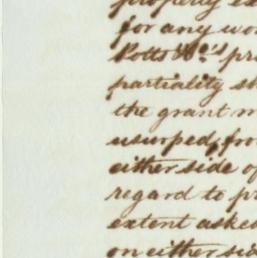 property ex
for any wor
Potts & Co's pri
partiality sh
the grant m
usurped, fro
either side of
regard to pr
extent asked
on either sid